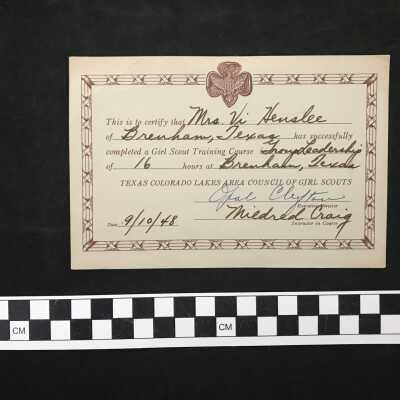 This is to certify that Mrs. Vi Henslee
of Brenham, Texas has successfully
completed a Girl Scout Training Course Troop Leadership
of 16 hours at Brenham, Texas
TEXAS COLORADO LAKES AREA COUNCIL OF GIRL SCOUTS
Opal Clayton
Executive Director
Date 9/10/48 Mildred Craig
Instructor in Course
CM CM